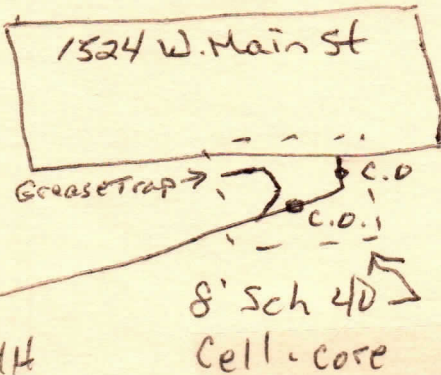 1524 W. Main St
Grease Trap →
C.O
C.O.
8' Sch 40
Cell-core
MH